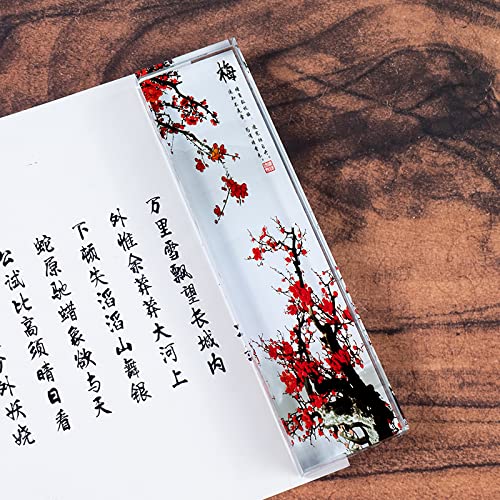 梅
万里雪飘望长城内
外惟余莽莽大河上
下顿失滔滔山舞银
蛇原驰蜡象欲与天
公试比高须晴日看
分外妖娆